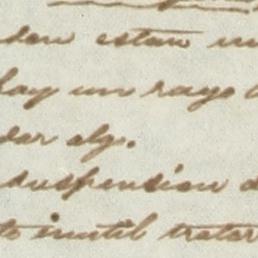 den estan in
hay un rayo
dar algo.
suspension d
to inutil tratar